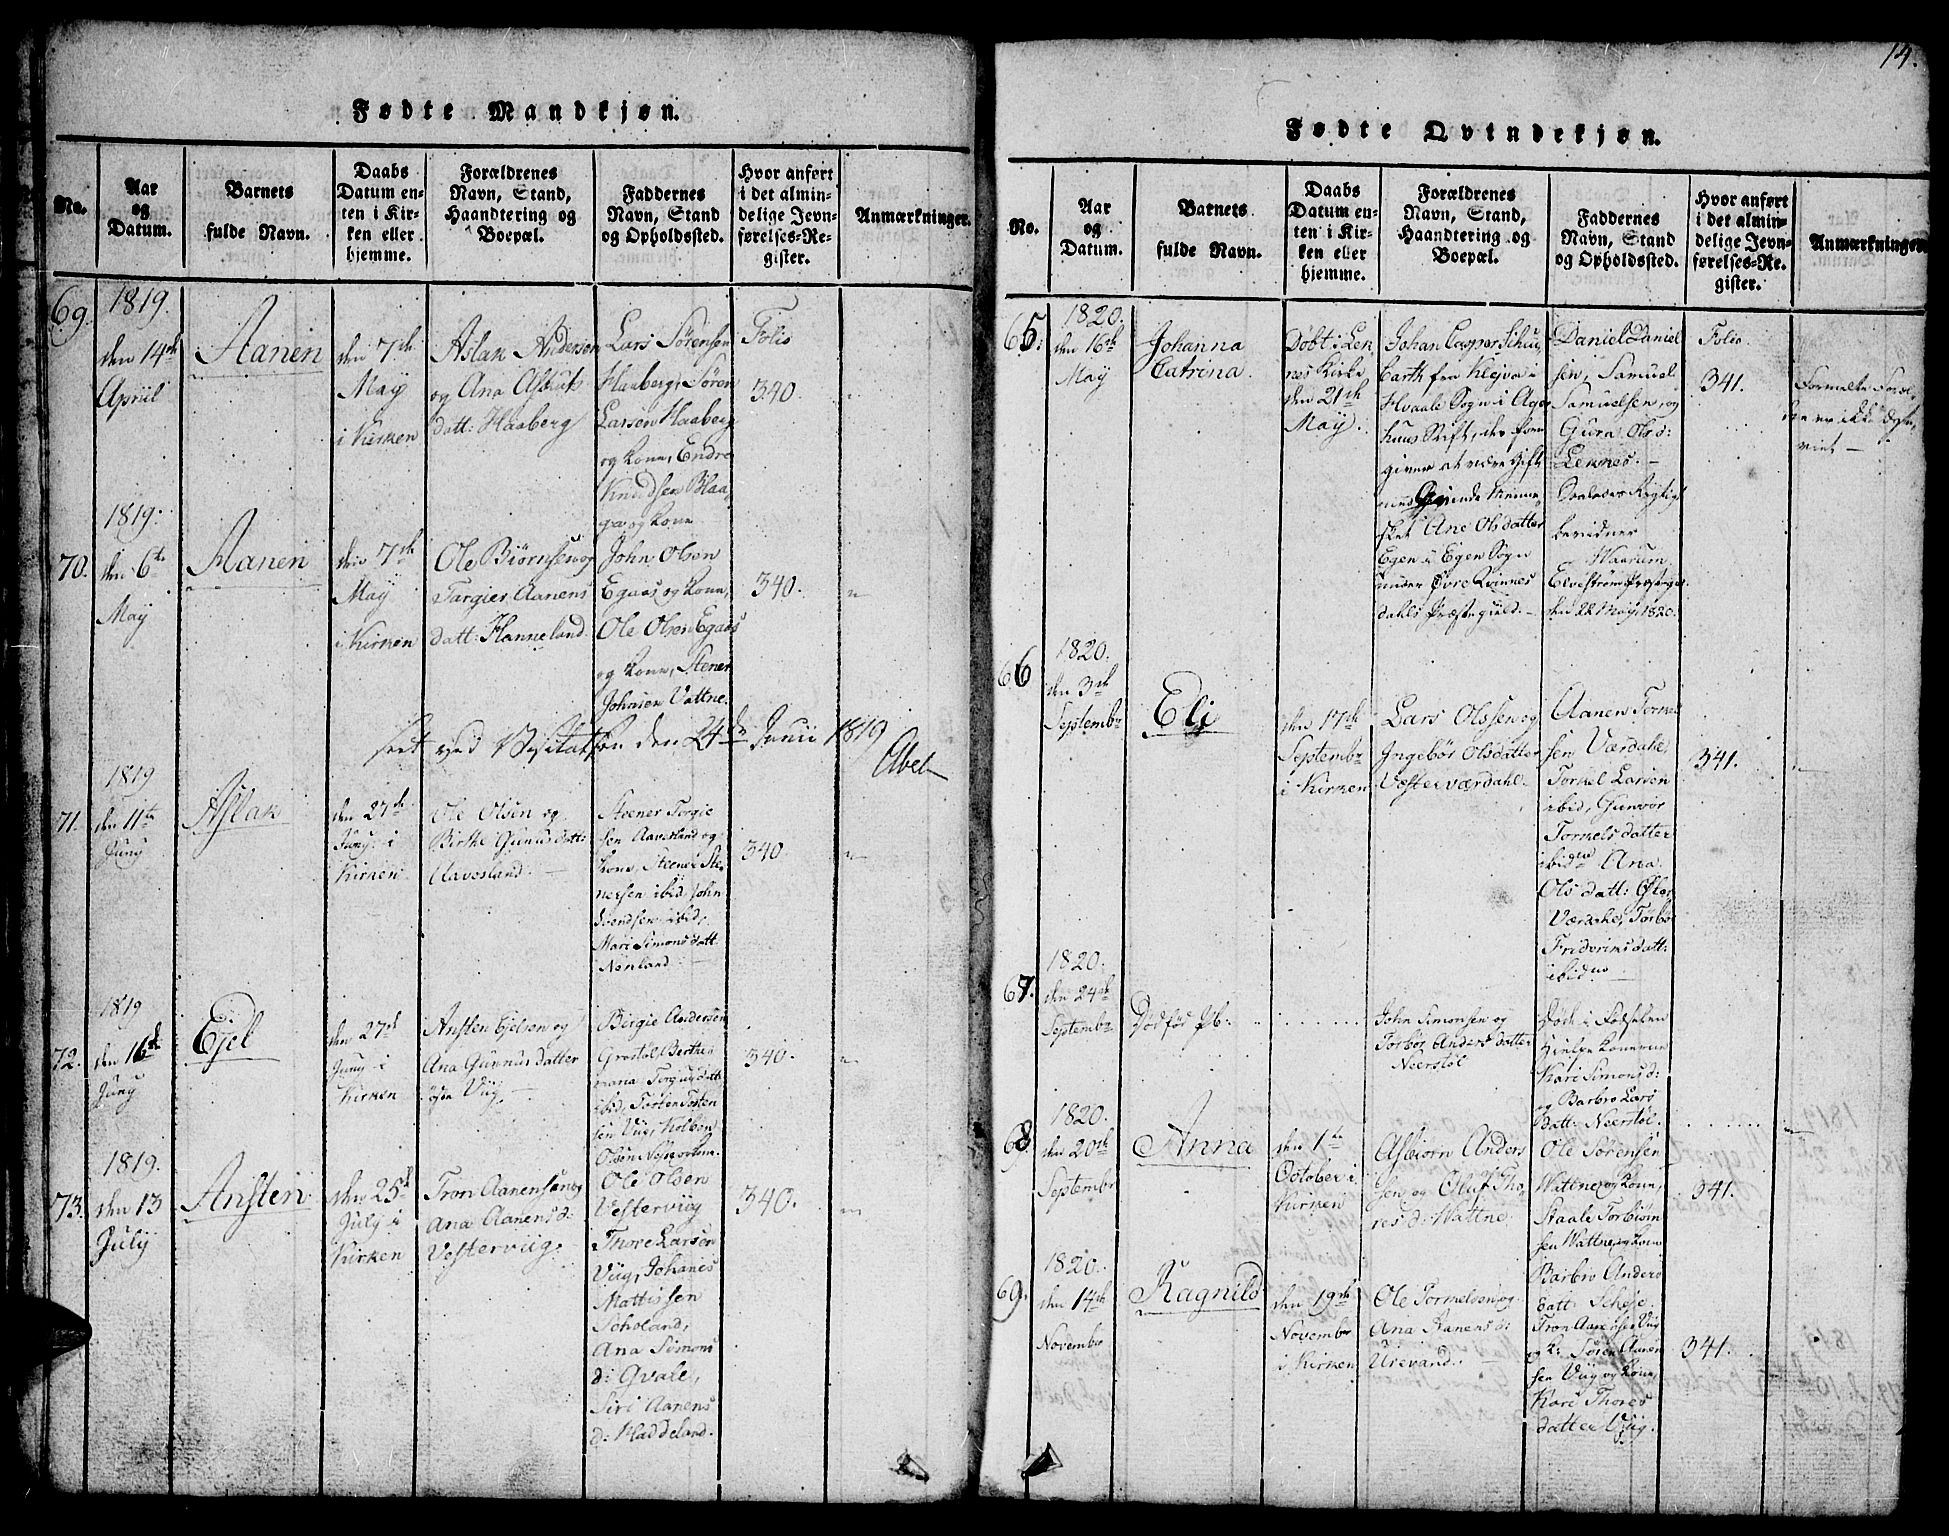 14.
Fødte Mandkjøn.
No.
Aar
og
Datum.
Barnets
fulde Navn.
Daabs
Datum en-
ten i Kir-
ken eller
hjemme.
Forældrenes
Navn, Stand,
Haandtering og
Boepæl.
Faddernes
Navn, Stand
og Opholdssted.
Hvor anført
i det almin-
delige Jevn-
førelses-Re-
gister.
Anmærkninger.
69.
1819.
den 14de
April
Aanen
den 7de
May
i Kirken
Aslak Andersen
og Ana Aslaks
datt: Haaberg
Lars Sørensen
Haaberg, Søren
Larsen Haaberg
og Kone, Endre
Knudsen
og Kone
Folio
340.
70.
1819.
den 6te
May
Aanen
den 7de
May
i Kirken
Ole Biørnsen og
Targier Aanens
datt: Hanneland.
John Olsen
Egaas og Kone,
Ole Olsen Egaas
og Kone, Stener
Johnsen Vattne.
340.
seet ved Visitatsen den 24de Junii 1819
Abel
71.
1819
den 11te
Juny
Aslak
den 27de
Juny i
Kirken
Ole Olsen og
Birthe Gunusdatt:
Uavesland.
Steener Torgie
sen Aavesland og
Kone, Steener Ste
nersen ibid, John
Svendsen ibid,
Mari Simonsdatt
Nenland
340
72.
1819
den 16de
Juny
Ejel
den 27de
Juny i
Kirken
Ansten Ejelsen og
Ana Gunnusdatter
Viig.
Birgie Andersen
Grostøl, Berthe
mana Torgiusdatt
ibid, Torsten Tosten
sen Viig, Kolben
Olsen Nese og Kone.
340.
73.
1819.
den 13
July
Ansten
den 25de
July i
Kirken
Tron Aanensen og
Ana Aanensd:
Vesterviig.
Ole Olsen
Vesterviig
Thore Larsen
Viig, Johanes
Mattissen
Scholand,
Ana Simons
d: Qvale,
Siri Aanens
d: Haddeland.
340.
Fødte Qvindekjøn.
No.
Aar
og
Datum.
Barnets
fulde Navn.
Daabs
Datum en-
ten i Kir-
ken eller
hjemme.
Forældrenes
Navn, Stand,
Haandtering og
Boepæl.
Faddernes
Navn, Stand
og Opholdssted.
Hvor anført
i det almin-
delige Jevn-
førelses-Re-
gister.
Anmærkninger
65.
1820.
den 16de
May
Johanna
Catrina.
Døbt i Len
nes Kirke
den 21de
May.
Johan Casper Schu
barth fra Klejva i
Hvaale Sogn i Ager
huus Stift, der fore
giver at være Gift
med Qvinde Menne
sket Ane Olsdatter
Egen i Egen Sogn
under Øvre Qvinnes
dahls Præstegield.
Daniel Daniel
sen, Samuel
Samuelsen, og
Gura Olsd:
Lennes.
Saaledes Rigtig
bevidner
Waarum,
den 22 May 1820.
Folio
341.
Formelte Foræl
dre er ikke
viet
66
1820.
den 3de
Septembr
Eli
den 17de
Septembr
i Kirken
Lars Olssen og
Ingebør Olsdatter
Vesterværdahl.
Aanen Torkel
sen Værdahl,
Torkel Larsen
ibid, Gunvor
Torkelsdatter
ibid, Ana
Olsdatt: Øster
Værdahl, Torbør
Frideriksdatt:
ibidm
341.
67.
1820.
den 24de
Septembr
Dødfød Pb:
John Simonsen og
Torbør Andersdatter
Neerstøl
Døde i Fødselen
Hielpe Konerne
Kari Simonsd:
og Barbro Lars
datt: Neerstøl.
68.
1820.
den 20de
Septembr
Anna
den 1te
October i
Kirken
Asbiorn Anders
sen, og Oluf Tho
resd: Wattne.
Ole Sørensen
Wattne, og Kone,
Staale Torbiøn
sen Wattne, og Kone
Barbro Anders
datt: Scheje.
341.
69.
1820.
den 14de
Novembr
Ragnild
den 19de
Novembr
i Kirken
Ole Tormelsen og
Ana Aanensd:
Urevand.
Tron Aanensen Viig
og K: Søren Aanen
sen Viig og Kone,
Kari Thores
datter Viig.
341.